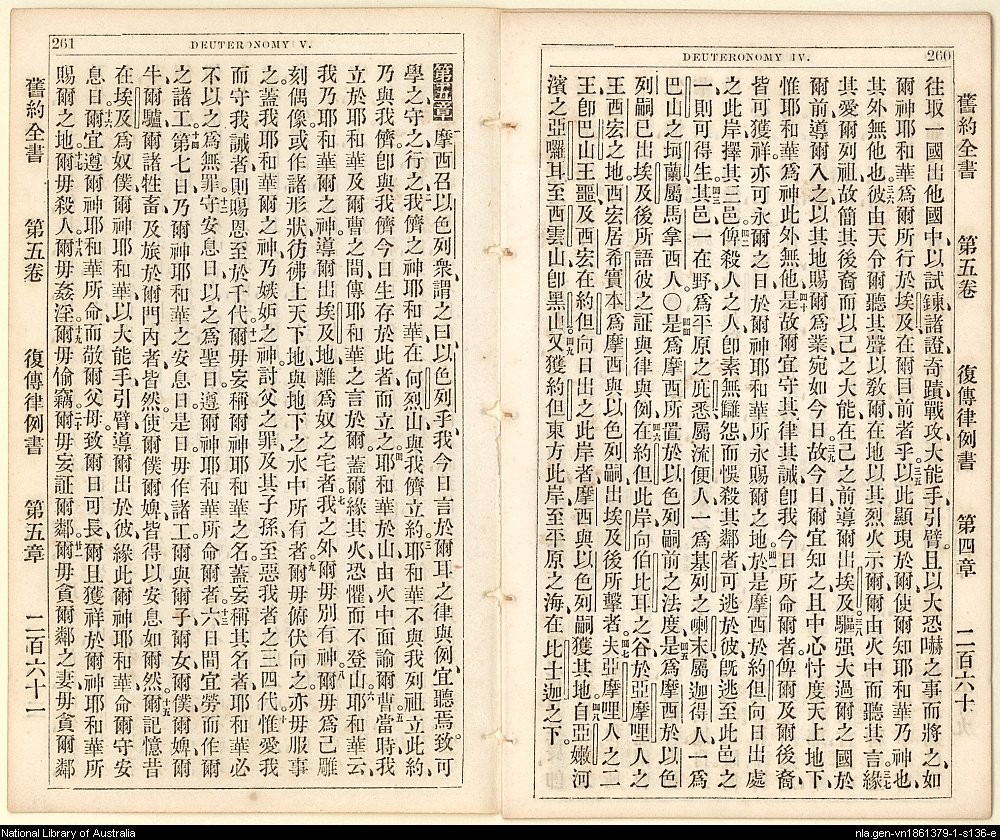 260
DEUTERONOMY IV.
舊約全書 第五卷 復傳律例書 第四章 二百六十
往取一國出他國中、以試鍊諸證奇蹟戰攻大能手引臂且以大恐嚇之事而將之如
爾神耶和華爲爾所行於埃及在爾目前者乎。三五以此顯現於爾使爾知耶和華乃神也
其外無他也。三六彼由天令爾聽其聲以敎爾、在地以其烈火示爾、爾由火中而聽其言。三七緣
其愛爾列祖故簡其後裔而以己之大能在己之前導爾出埃及。三八驅强大過爾之國於
爾前導爾入之以其地賜爾爲業宛如今日。三九故今日爾宜知之且中心忖度天上地下
惟耶和華爲神此外無他。四十是故爾宜守其律其誡卽我今日所命爾者俾爾及爾後裔
皆可獲祥亦可永爾之日於爾神耶和華所永賜爾之地。四一於是摩西於約但向日出處
之此岸擇其三邑。四二俾殺人之人卽素無讎怨而悞殺其鄰者可逃於彼旣逃至此邑之
一則可得生。四三其邑一在野爲平原之庇悉屬流便人一爲基列之喇末屬迦得人一爲
巴山之坷蘭屬馬拿西人〇四四是爲摩西所置於以色列嗣前之法度。四五是爲摩西於以色
列嗣已出埃及後所語彼之証與律與例。四六在約但此岸向伯比耳之谷於亞摩哩人之
王西宏之地西宏居希實本爲摩西與以色列嗣出埃及後所擊者。四七夫亞摩哩人之二
王卽巴山王噩及西宏在約但向日出之此岸者摩西與以色列嗣獲其地。四八自亞嫩河
濱之亞囉耳至西雲山卽黑山。四九又獲約但東方此岸至平原之海在比士迦之下。
261
DEUTERONOMY V.
第五章 摩西召以色列衆謂之曰以色列乎我今日言於爾耳之律與例宜聽焉致可
學之守之行之。二我儕之神耶和華在何烈山與我儕立約。三耶和華不與我列祖立此約
乃與我儕卽與我儕今日生存於此者而立之。四耶和華於山由火中面諭爾曹。五當時我
立於耶和華及爾曹之間傳耶和華之言於爾蓋爾緣其火恐懼而不登山耶和華云。六
我乃耶和華爾之神導爾出埃及地離爲奴之宅者。七我之外爾毋別有神。八爾毋爲己雕
刻偶像或作諸形狀彷彿上天下地與地下之水中所有者。九爾毋俯伏向之亦毋服事
之蓋我耶和華爾之神乃嫉妒之神討父之罪及其子孫至惡我者之三四代。十惟愛我
而守我誡者則賜恩至於千代。十一爾毋妄稱爾神耶和華之名蓋妄稱其名者耶和華必
不以之爲無罪。十二守安息日以之爲聖日遵爾神耶和華所命爾者。十三六日間宜勞而作爾
之諸工。十四第七日乃爾神耶和華之安息日是日毋作諸工爾與爾子爾女爾僕爾婢爾
牛爾驢爾諸牲畜及旅於爾門內者皆然使爾僕爾婢皆得以安息如爾然。十五爾記憶昔
在埃及爲奴僕爾神耶和華以大能手引臂導爾出於彼緣此爾神耶和華命爾守安
息日。十六爾宜遵爾神耶和華所命而敬爾父母致爾日可長爾且獲祥於爾神耶和華所
賜爾之地。十七爾毋殺人。十八爾毋姦淫。十九爾毋偷竊。二十爾毋妄証爾鄰。廿一爾毋貪爾鄰之妻毋貪爾鄰
舊約全書 第五卷 復傳律例書 第五章 二百六十一
National Library of Australia
nla.gen-vn1861379-1-s136-e